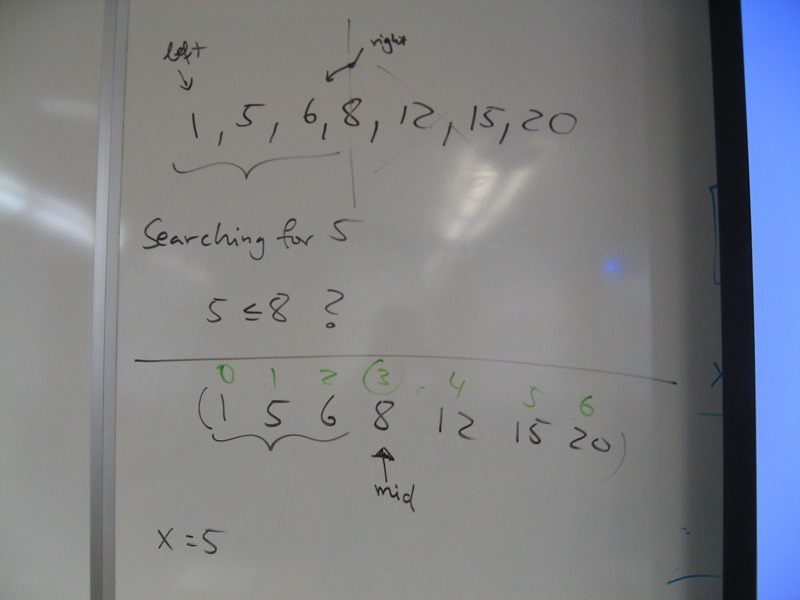 left right
1, 5, 6, 8, 12, 15, 20
Searching for 5
5 ≤ 8 ?
0 1 2 3 4 5 6
(1 5 6 8 12 15 20)
mid
x = 5